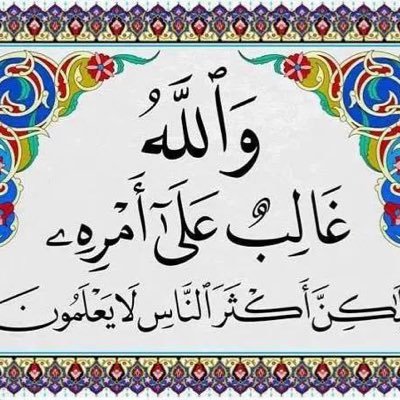 وَٱللَّهُ
غَالِبٌ عَلَىٰٓ أَمْرِهِۦ
لَٰكِنَّ أَكْثَرَ ٱلنَّاسِ لَا يَعْلَمُونَ